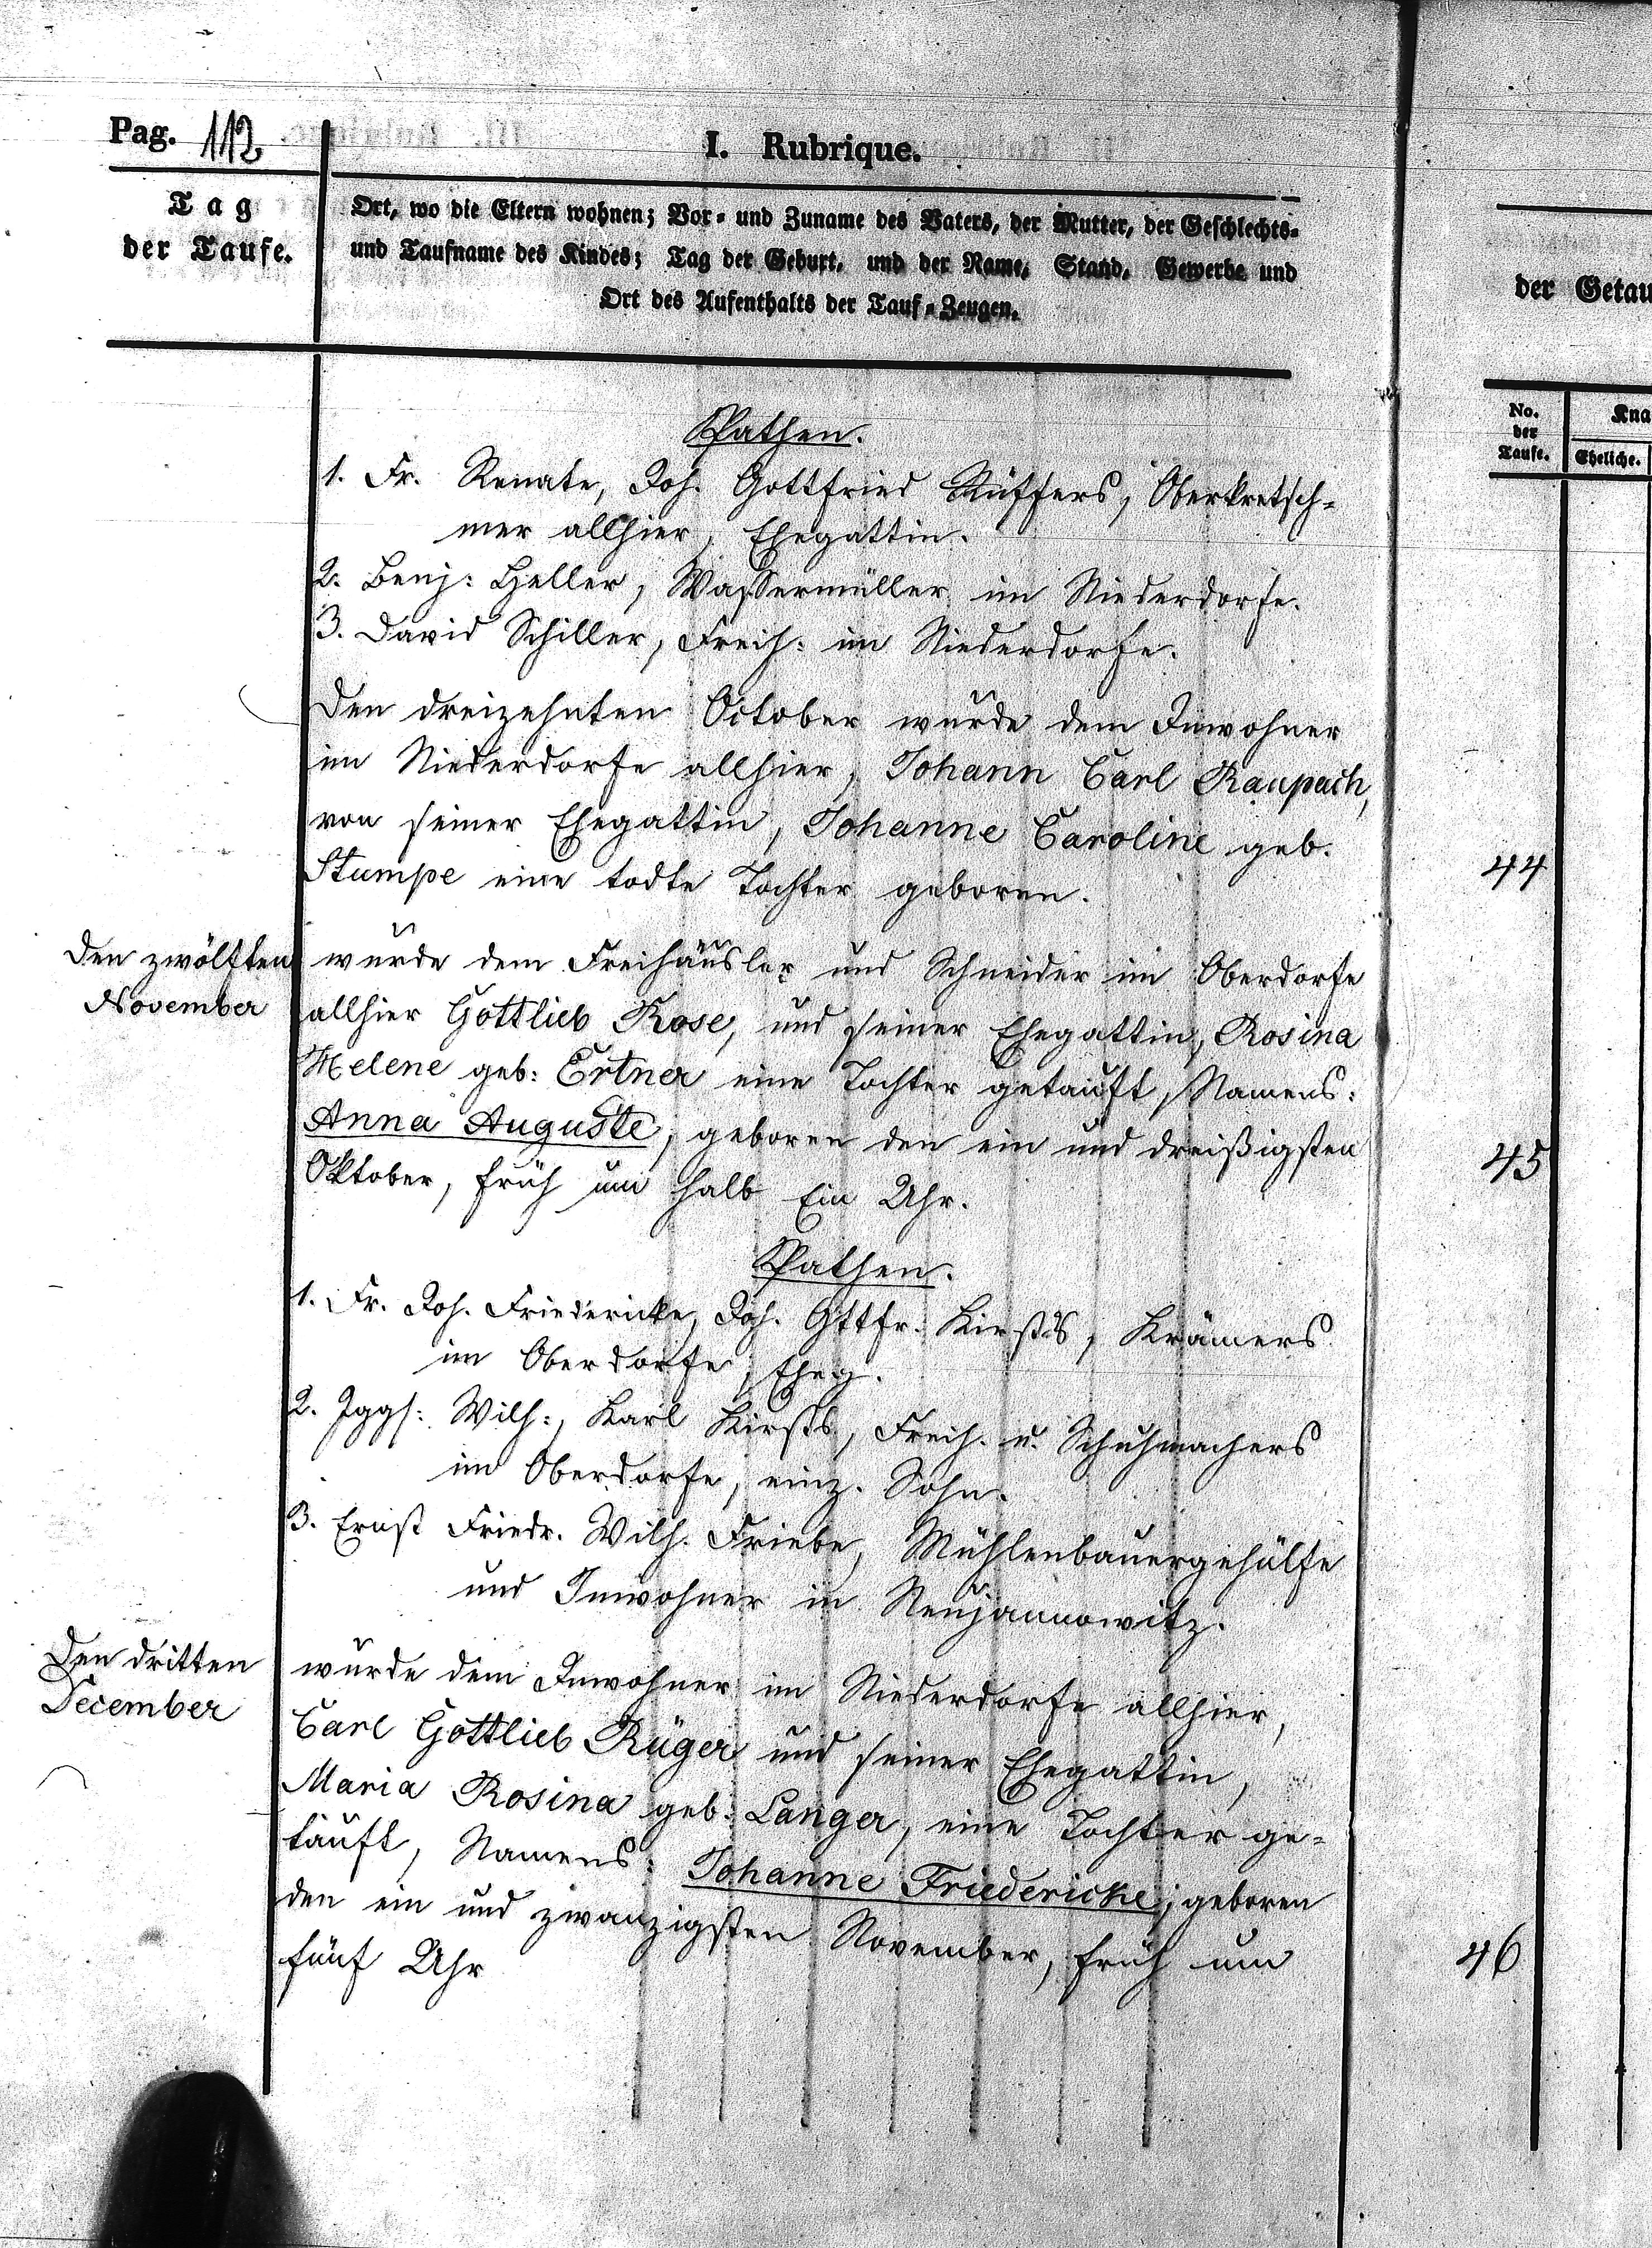 Pag. 112
I. Rubrique.
Tag
der Taufe.
Ort, wo die Eltern wohnen; Vor- und Zuname des Vaters, der Mutter, der Geschlechts-
und Taufname des Kindes; Tag der Geburt, und der Name, Stand, Gewerbe und
Ort des Aufenthalts der Tauf-Zeugen.
Pathen.
1. Fr. Renate, Joh. Gottfried Rüffers, Oberkretsch-
mer allhier, Ehegattin.
2. Benj: Heller, Wassermüller im Niederdorfe.
3. David Schiller, Freih: im Niederdorfe.
Den dreizehnten October wurde dem Inwohner
im Niederdorfe allhier, Johann Carl Raupach,
von seiner Ehegattin, Johanne Caroline geb.
Stumpe eine todte Tochter geboren.
44
Den zwölften
November
wurde dem Freihäusler und Schneider im Oberdorfe
allhier Gottlieb Rose, und seiner Ehegattin, Rosina
Helene geb: Ertner eine Tochter getauft, Namens:
Anna Auguste, geboren den ein und dreißigsten
Oktober, früh um halb Ein Uhr.
45
Pathen.
1. Fr. Joh. Friedericke, Joh. Gttfr. Kirsts, Krämers
im Oberdorfe, Eheg.
2. Jggs: Wilh:, Karl Kirsts, Freih. u. Schuhmachers
im Oberdorfe, einz. Sohn.
3. Ernst Friedr. Wilh. Friebe, Mühlenbauergehülfe
und Inwohner in Neujannowitz.
Den dritten
December
wurde dem Inwohner im Niederdorfe allhier,
Carl Gottlieb Rüger und seiner Ehegattin,
Maria Rosina geb: Langer, eine Tochter ge-
tauft, Namens: Johanne Friedericke, geboren
den ein und zwanzigsten November, früh um
fünf Uhr
46
der Getau
No.
der
Taufe.
Kna
Eheliche.